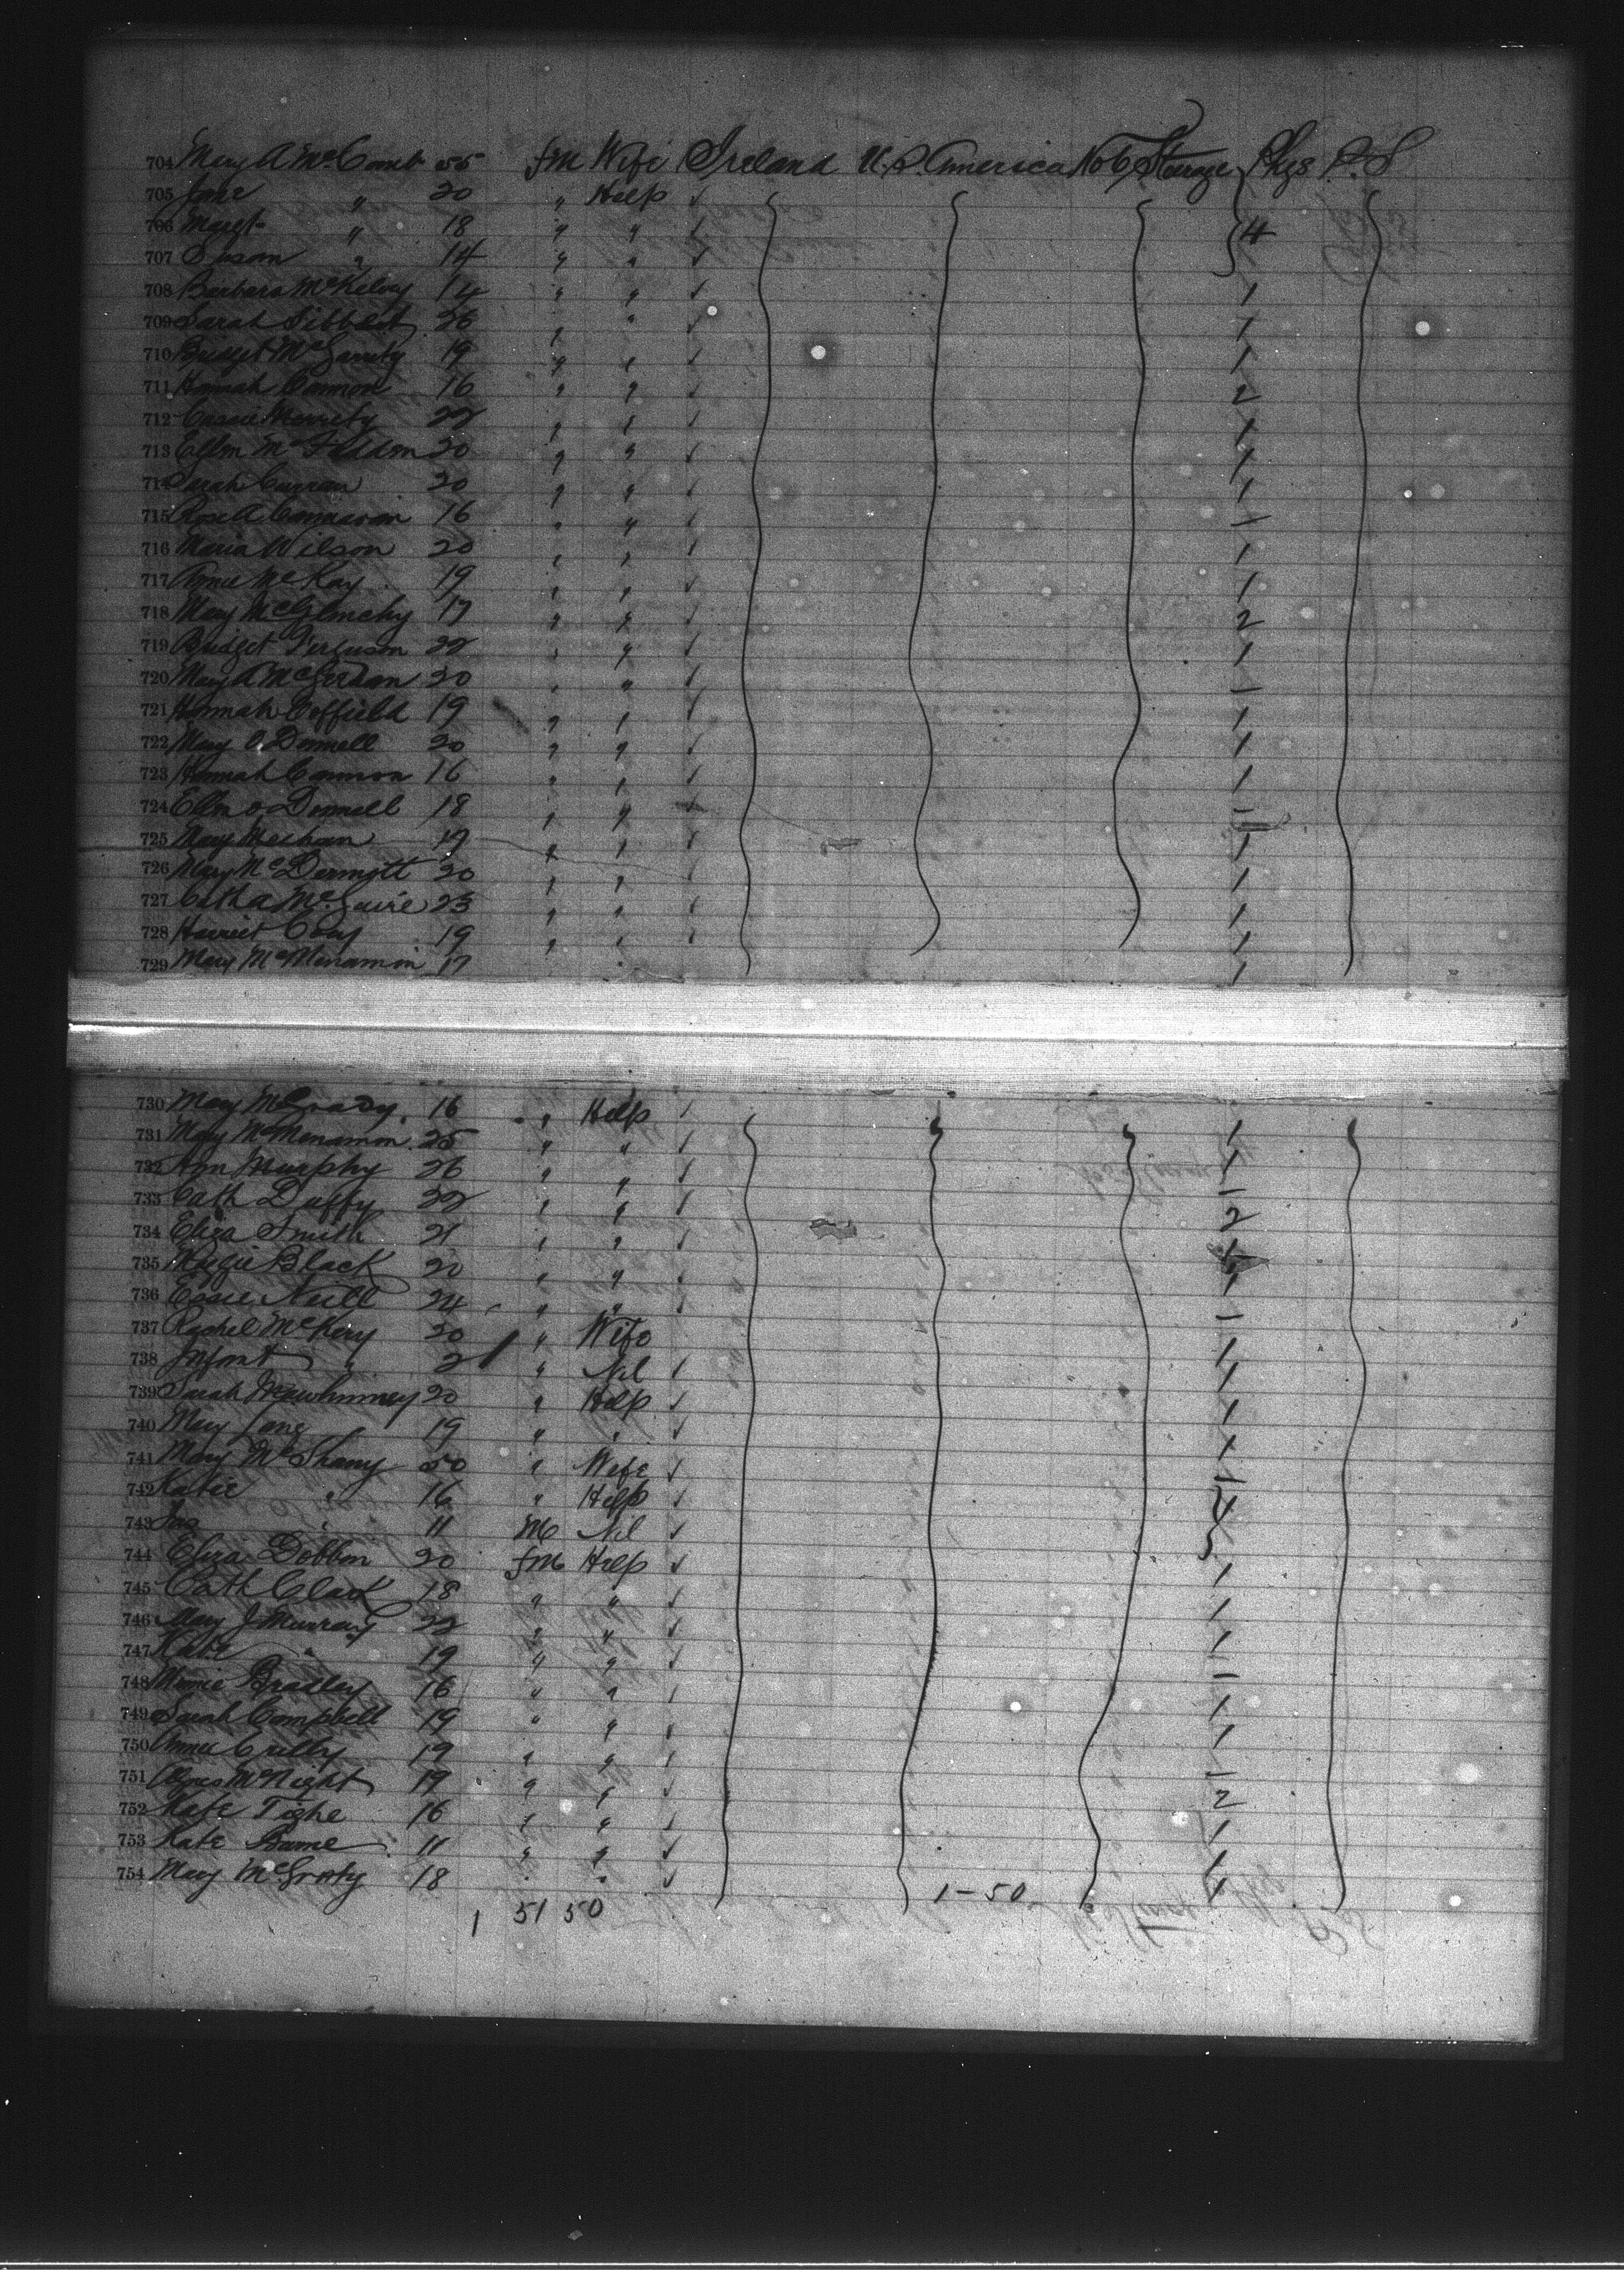 704 Mary A McCourt 55 fm Wife Ireland U.S. America No 6 Steerage Phgs P.S
705 Jane " 20 " Help ✓
706 Margt " 18 " " ✓ 4
707 Susan " 14 " " ✓
708 Barbara McKelvey 14 " " ✓ 1
709 Sarah Sibbett 26 " " ✓ 1
710 Bridget McGarrity 19 " " ✓ 1
711 Hannah Cannon 16 " " ✓ 2
712 Cassie 22 " " ✓ 1
713 Ellen McFadden 20 " " ✓ 1
714 Sarah Curran 20 " " ✓ 1
715 Rose A 16 " " ✓ 1
716 Maria Wilson 20 " " ✓ 1
717 Annie McKay 19 " " ✓ 1
718 Mary McGlinchy 17 " " ✓ 2
719 Bridget Ferguson 22 " " ✓ 1
720 Mary A 20 " " ✓ 1
721 Hannah Coffield 19 " " ✓ 1
722 Mary O'Donnell 20 " " ✓ 1
723 Hannah Cannon 16 " " ✓ 1
724 Ellen O Donnell 18 " " ✓ 1
725 Mary 19 " " ✓ 1
726 Mary McDermott 20 " " ✓ 1
727 Cath A McGuire 23 " " ✓ 1
728 Harriet 19 " " ✓ 1
729 Mary McMenamin 17 1
730 Mary McGrady 16 " Help ✓ 1
731 Mary McMenamin 25 " " ✓ 1
732 Ann Murphy 26 " " ✓ 1
733 Cath Duffy 22 " " ✓ 2
734 Eliza Smith 21 " " ✓ 1
735 Maggie Black 20 " " ✓ 1
736 Essie Neill 24 " " ✓ 1
737 Rachel 20 " Wife 1
738 Infant " " Nil ✓ 1
739 Sarah Mawhinney 20 " Help ✓ 1
740 Mary Lang 19 " " ✓ 1
741 Mary McShany 50 " Wife ✓
742 Katie " 16 " Help ✓ 4
743 Jas " 11 M Nil ✓
744 Eliza Dobbin 20 fm Help ✓ 1
745 Cath Clark 18 " " ✓ 1
746 Mary J Murray 22 " " ✓ 1
747 Kate " 19 " " ✓ 1
748 Minnie Bradley 16 " " ✓ 1
749 Sarah Campbell 19 " " ✓ 1
750 Annie Crilly 19 " " ✓ 1
751 Agnes McNight 19 " " ✓ 2
752 Kate Tighe 16 " " ✓ 1
753 Kate 11 " " ✓ 1
754 Mary McGroty 18 " " ✓ 1
1 51 50 1-50